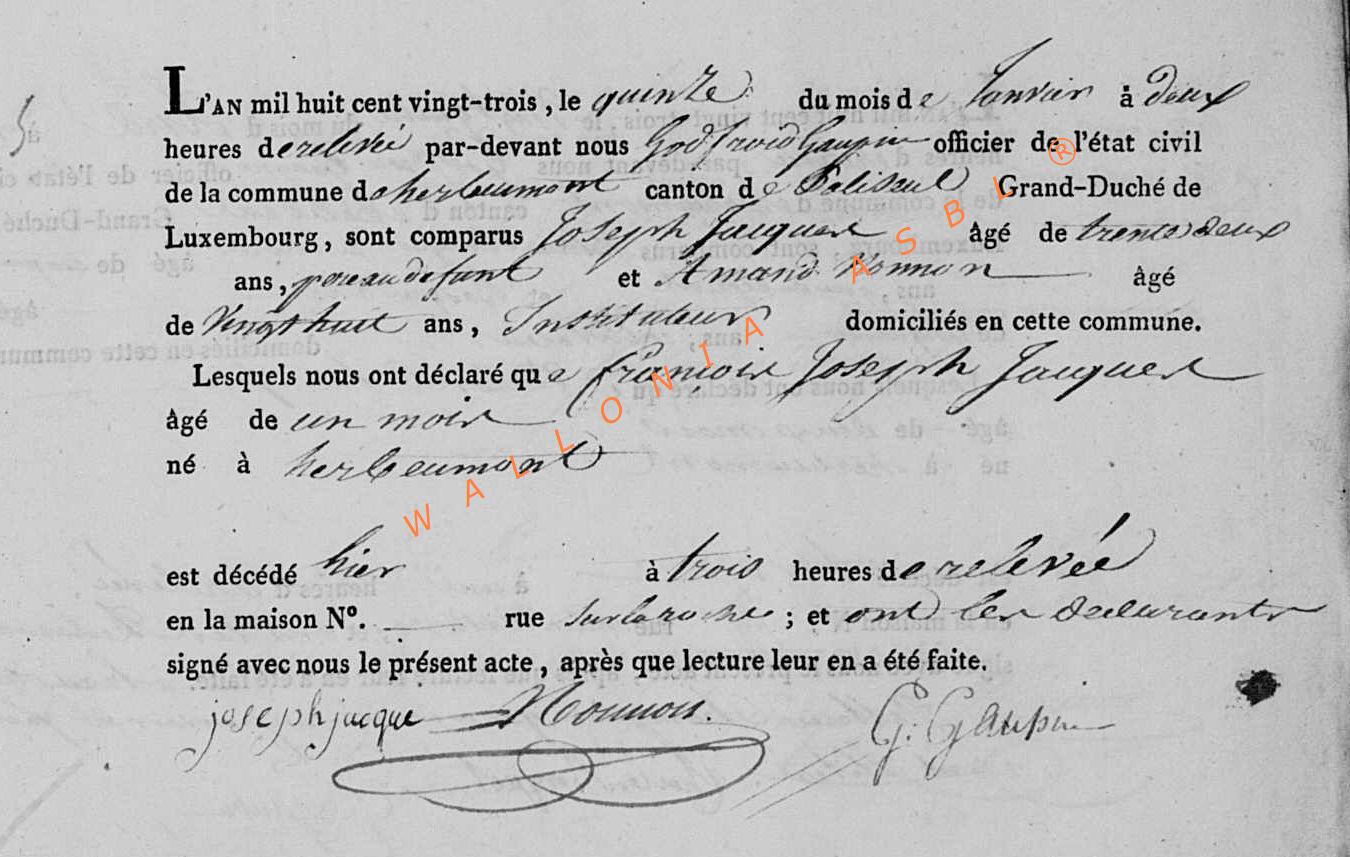 5
L'AN mil huit cent vingt-trois, le quinze du mois de Janvier à deux
heures de relevé par-devant nous Godfroid Gaupin officier de l'état civil
de la commune d'herbeumont canton de Paliseul Grand-Duché de
Luxembourg, sont comparus Joseph Jacques âgé de trente deux
ans, pere au defunt et Amand Nonnon âgé
de Vingt huit ans, Instituteur domiciliés en cette commune.
Lesquels nous ont déclaré que françois Joseph Jacques
âgé de un mois
né à herbeumont
est décédé hier à trois heures de relevée
en la maison N°. rue sur la roche ; et ont les declarants
signé avec nous le présent acte, après que lecture leur en a été faite.
joseph jacque Nonnon. G. Gaupin
WALLONIA ASBL ®